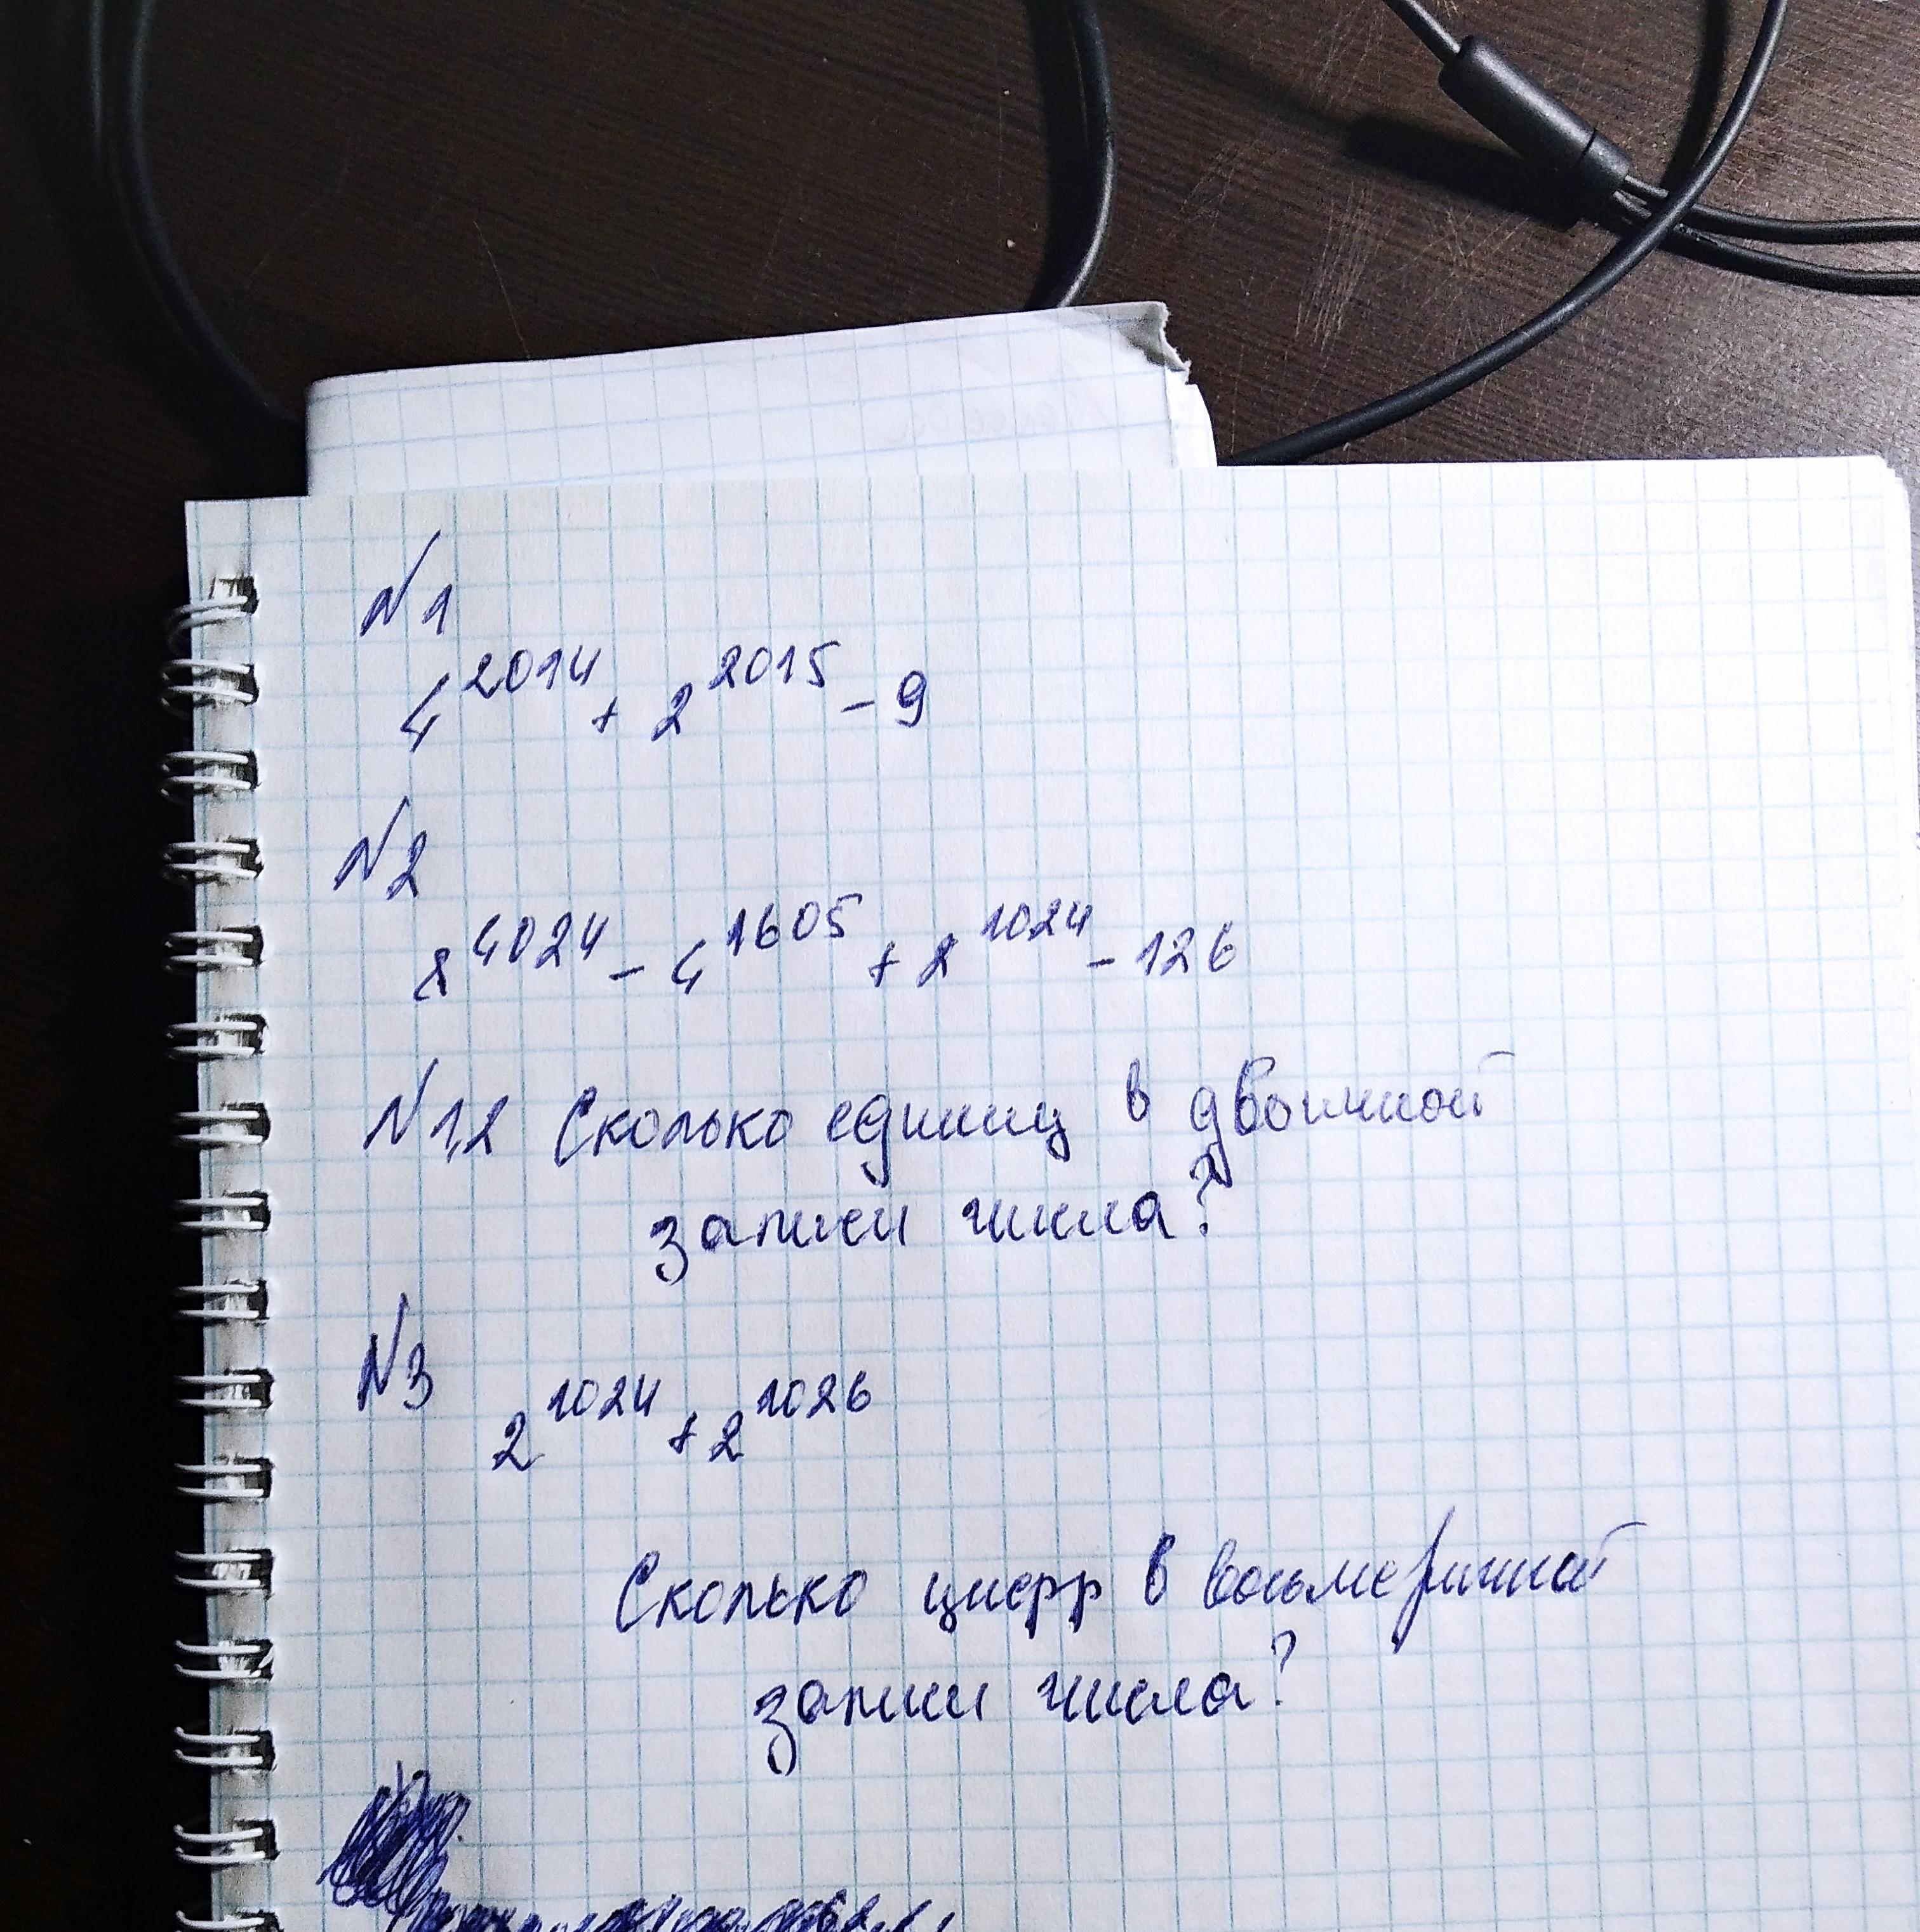 N1
4^2014 + 2^2015 - 9
N2
8^4024 - 4^1605 + 2^1024 - 126
N1,2 Сколько единиц в двоичной
записи числа?
N3
2^1024 + 2^1026
Сколько цифр в восьмеричной
записи числа?